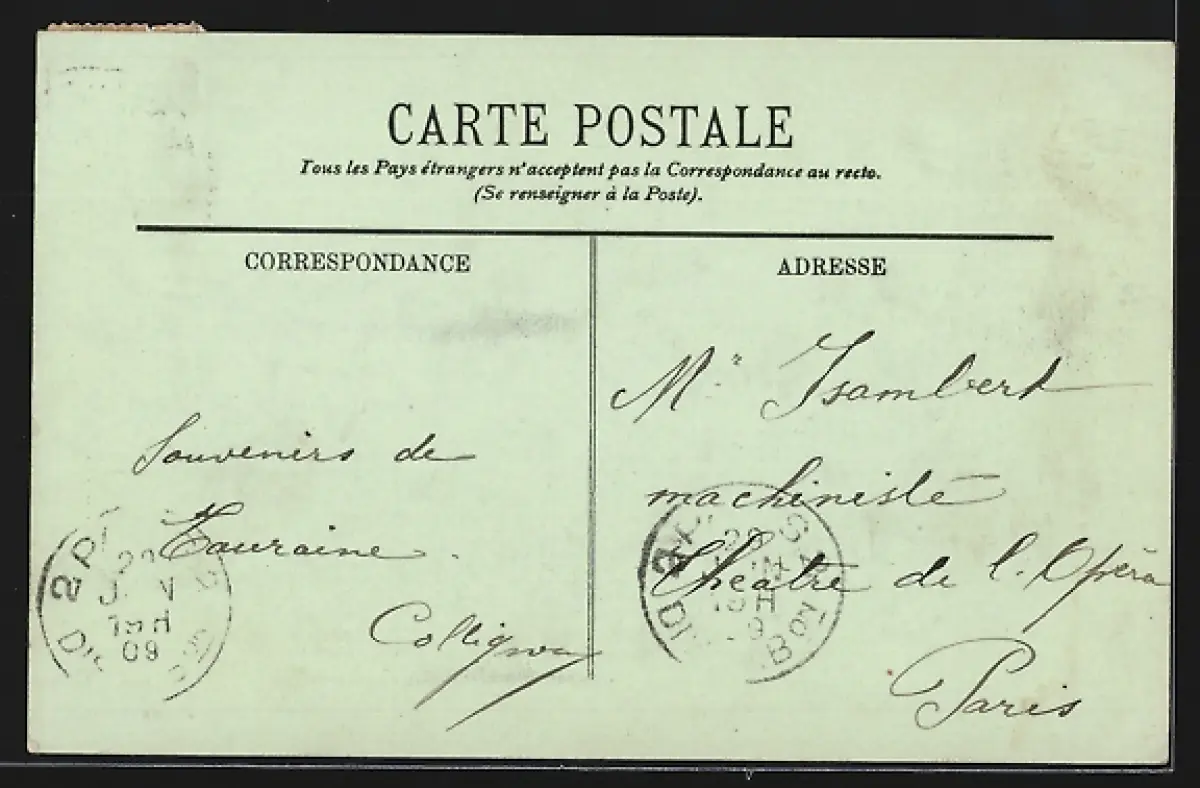 CARTE POSTALE
Tous les Pays étrangers n'acceptent pas la Correspondance au recto.
(Se renseigner à la Poste).
CORRESPONDANCE
ADRESSE
Souvenirs de
Touraine.
Collignon
Mr Isambert
machiniste
Théatre de l'Opéra
Paris
09